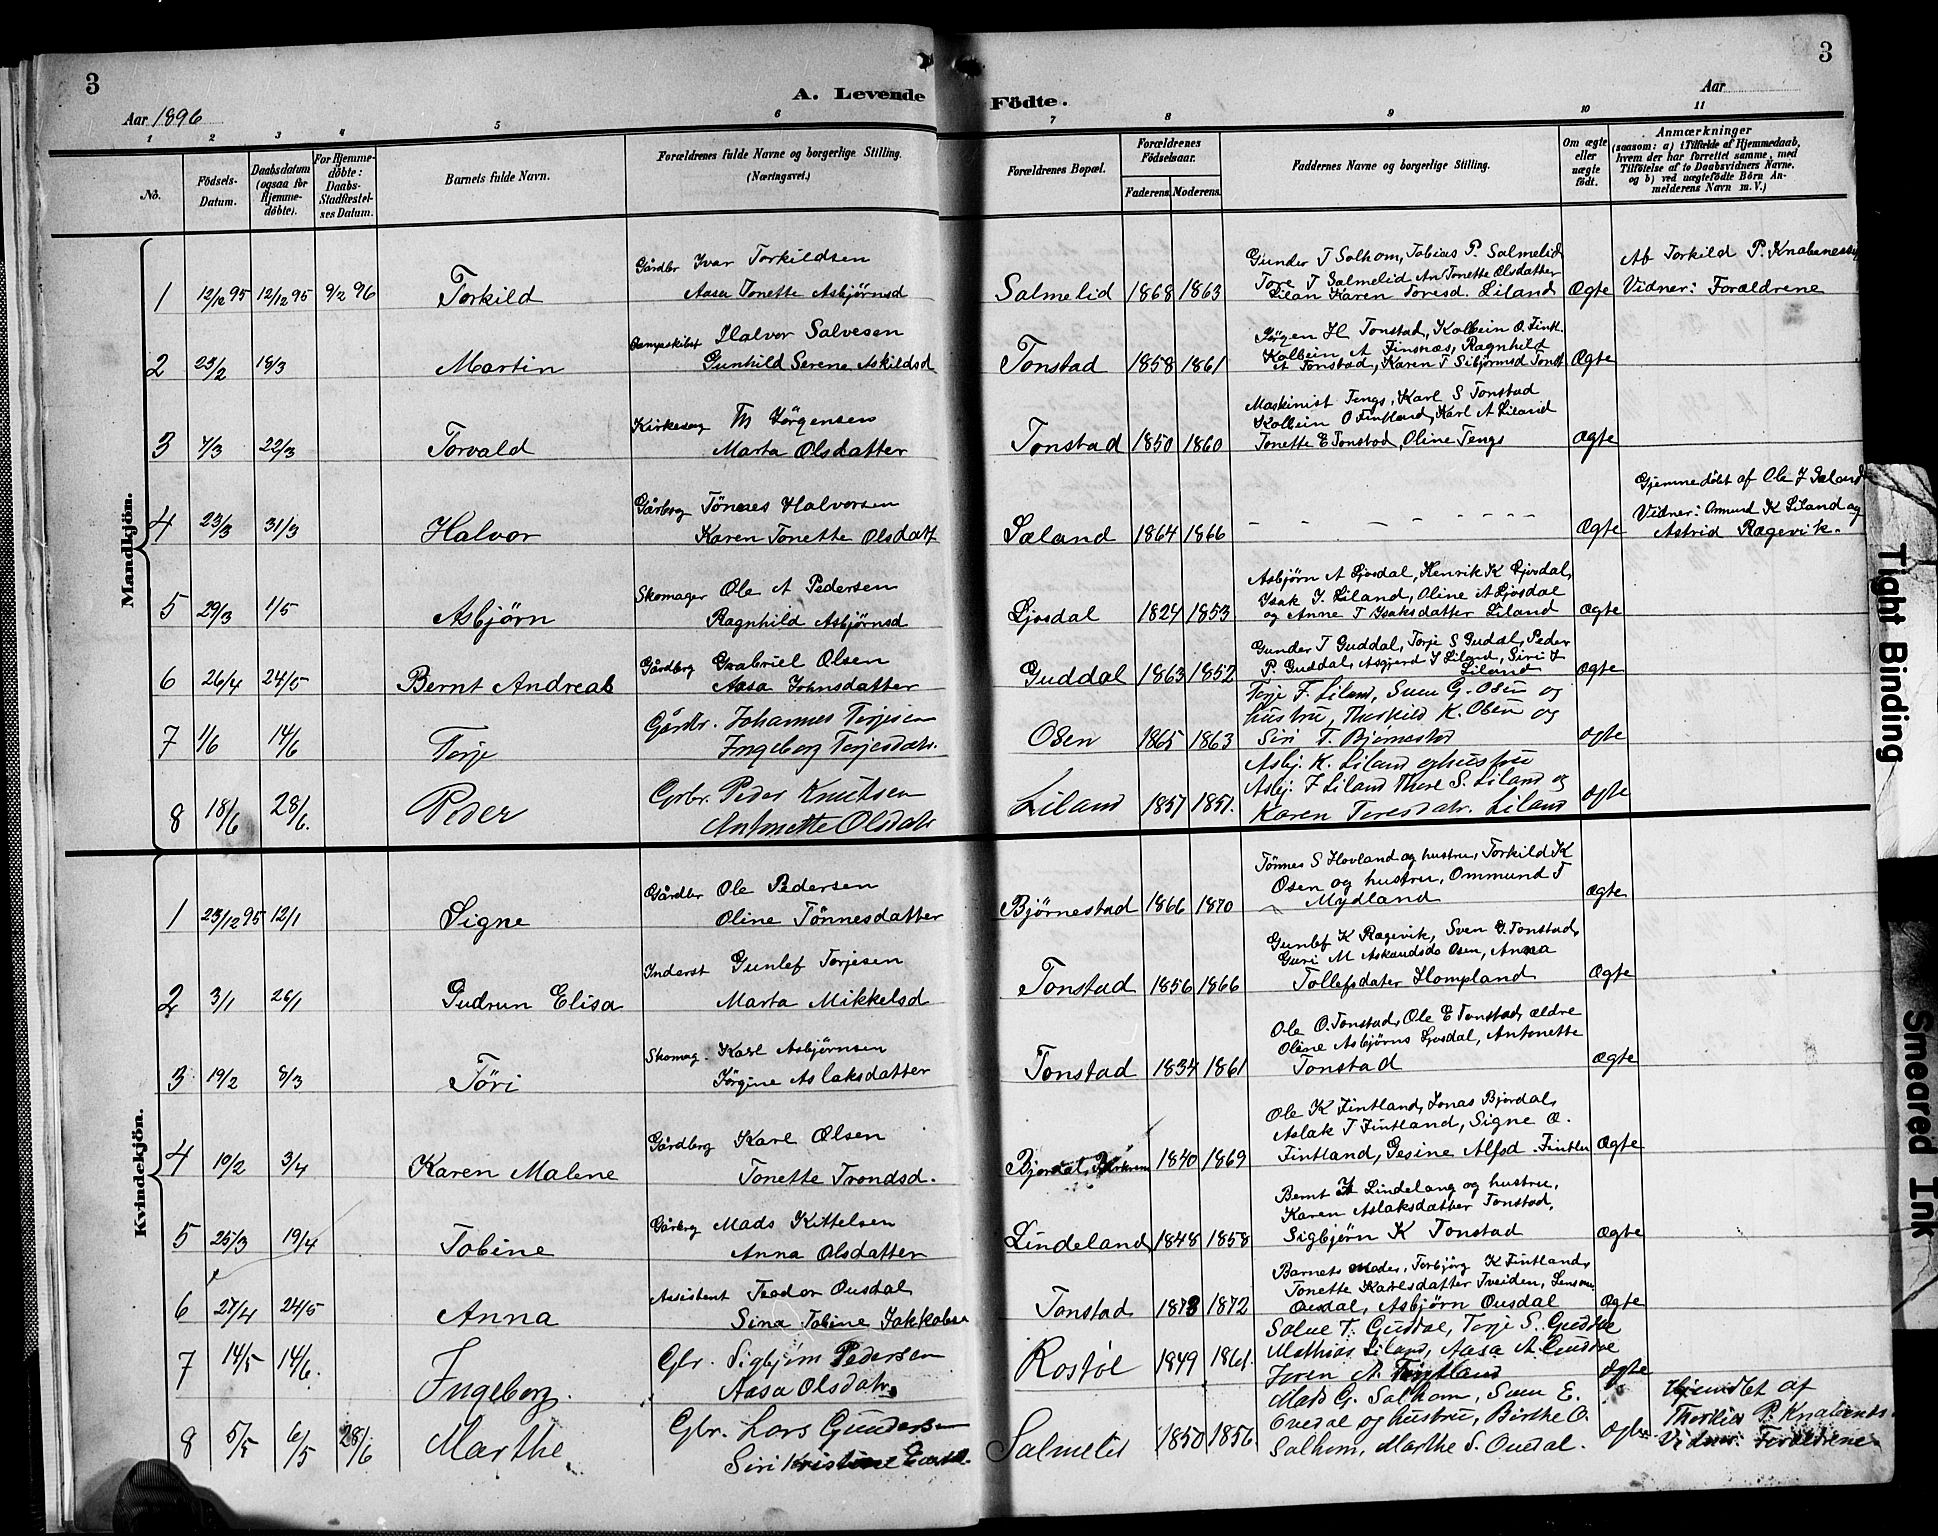 3
A. Levende
Aar 1896
1 2 3 4 5 6
No.
Födsels-Datum.
Daabsdatum (ogsaa for Hjemme-döbte).
For Hjemme-döbte: Daabs-Stadfæstel-ses Datum.
Barnets fulde Navn.
Forældrenes fulde Navne og borgerlige Stilling.
(Næringsvei.)
Mandkjön.
Gårdbr Ivar Torkildsen
1 12/12 95 12/12 95 9/2 96 Torkild Aasa Tonette Asbjørnsd
Halvor Salvesen
2 23/2 18/3 Martin Gunhild Serene Askildsd
Kirkesang Th Jörgensen
3 7/3 22/3 Torvald Marta Olsdatter
Gårbrg Tönnes Halvorsen
4 23/3 31/3 Halvor Karen Tonette Olsdatt
Skomager Ole A Pedersen
5 29/3 1/5 Asbjörn Ragnhild Asbjørnsd
Gårdbrg Gabriel Olsen
6 26/4 24/5 Bernt Andreas Aasa Johnsdatter
Gårdbr. Johannes Terjesen
7 1/6 14/6 Torje Ingeborg Terjesdatr.
Grbr. Peder Knutsen
8 18/6 28/6. Peder Antonette Olsdatr
Kvindekjön.
Gårdbr Ole Pedersen
1 23/12 95 12/1 Signe Oline Tönnesdatter
Inderst Gunlef Torjesen
2 3/1 26/1 Gudrun Elisa Marta Mikkelsd
Skomag. Karl Asbjørnsen
3 19/2 8/3 Töri Jörgine Aslaksdatter
Gårdbrg Karl Olsen
4 10/2 3/4 Karen Malene Tonette Trondsd.
Gårbrg Mads Kittelsen
5 25/3 19/4 Tobine Anna Olsdatter
Assistent Teodor Ousdal
6 27/4 24/5 Anna Sina Tobine Jakkobsen
Gbr. Sigbjørn Pedersen
7 14/5 14/6. Ingeborg. Aasa Olsdatr.
Gbr. Lars Gundersen
8 5/5 6/5 28/6 Marthe. Siri Kristine
3
Födte.
Aar
7 8 9 10 11
Forældrenes Bopæl.
Forældrenes Födselsaar.
Faderens. Moderens.
Faddernes Navne og borgerlige Stilling.
Om ægte eller uægte födt.
Anmærkninger
(saasom: a) i Tilfælde af Hjemmedaab, hvem der har forrettet samme, med Tilföielse af to Daabsvidners Navne. og b) ved uægtefödte Börn Anmelderens Navn m. V.)
Gunder T Solhom, Tobias P. Salmelid
Tore T Salmelid An Tonette Olsdatter
Salmelid 1868 1863 Lilan Karen Toresd. Liland Ægte
Af Torkild P.
Vidner: Forældrene
Jörgen H Tonstad, Kolbein O. Fintl.
Kolbein A Finsnæs, Ragnhild
Tonstad 1858 1861 A Tonstad, Karen T Sibjörnsd Tonst Ægte
Maskinist Tengs, Karl S Tonstad
Kolbein O Fintland, Karl A Liland
Tonstad 1850 1860 Tonette E Tonstad, Oline Tengs Ægte
Sæland 1864 1866 - - - - - - - Ægte
Gjemmedöbt af Ole J Sæland
Vidner: Ommund K Liland og
Astrid Rægevik.
Asbjørn A Ljosdal, Henrik K Ljosdal,
Isak J. Liland, Oline A Ljosdal
Ljosdal 1824 1853 og Anne T Isaksdatter Liland Ægte
Gunder T Guddal, Torje S Gudal, Peder
P. Guddal, Asgjerd J Liland, Siri J
Guddal 1863 1852 Liland Ægte
Torje F. Liland, Sven G. Osen og
hustru, Thorkild K. Osen og
Osen 1865 1863 Siri T. Bjørnestad ægte
Asbj. K. Liland og hustru
Asbj. J Liland Thore S. Liland og
Liland 1857 1851. Karen Toresdatr. Liland ægte
Tönnes S Hovland og hustru, Torkild K
Osen og hustru, Ommund T
Bjørnestad 1866 1870 Mydland Ægte
Gunlef K Rægevik, Sven O. Tonstad,
Guri M Osen, Anna
Tonstad 1856 1866 Tollefsdater Hompland Ægte
Ole O. Tonstad, Ole E Tonstad, ældre
Oline Asbjørns Ljosdal, Antonette
Tonstad 1834 1861 Tonstad Ægte
Ole K Fintland, Jonas Bjordal,
Aslak T Fintland, Signe O.
Bjordal, 1840 1869 Fintland, Gesine Alfsd. Fintlan Ægte
Bernt K Lindeland og hustru,
Karen Aslaksdatter Tonstad,
Lindeland 1848 1858 Sigbjørn K Tonstad Ægte
Barnets Moder, Torbjörg K Fintland,
Tonette Karlsdatter Tveiden,
Tonstad 1873 1872 Ousdal, Asbjørn Ousdal Ægte
Salve T. Guddal, Torje S. Guddal
Mathias Liland, Aasa A Guddal
Rostøl 1849 1861. Joren A. Fintland ægte
Mads G. Salhom, Sven E.
Ovedal og hustru, Birthe O.
Salmelid 1850 1856 Salhom, Marthe S. Ousdal. ægte
Hjemdbt af
Thorkild P.
Vidner. Forældrene
Tight Binding
Smeared Ink